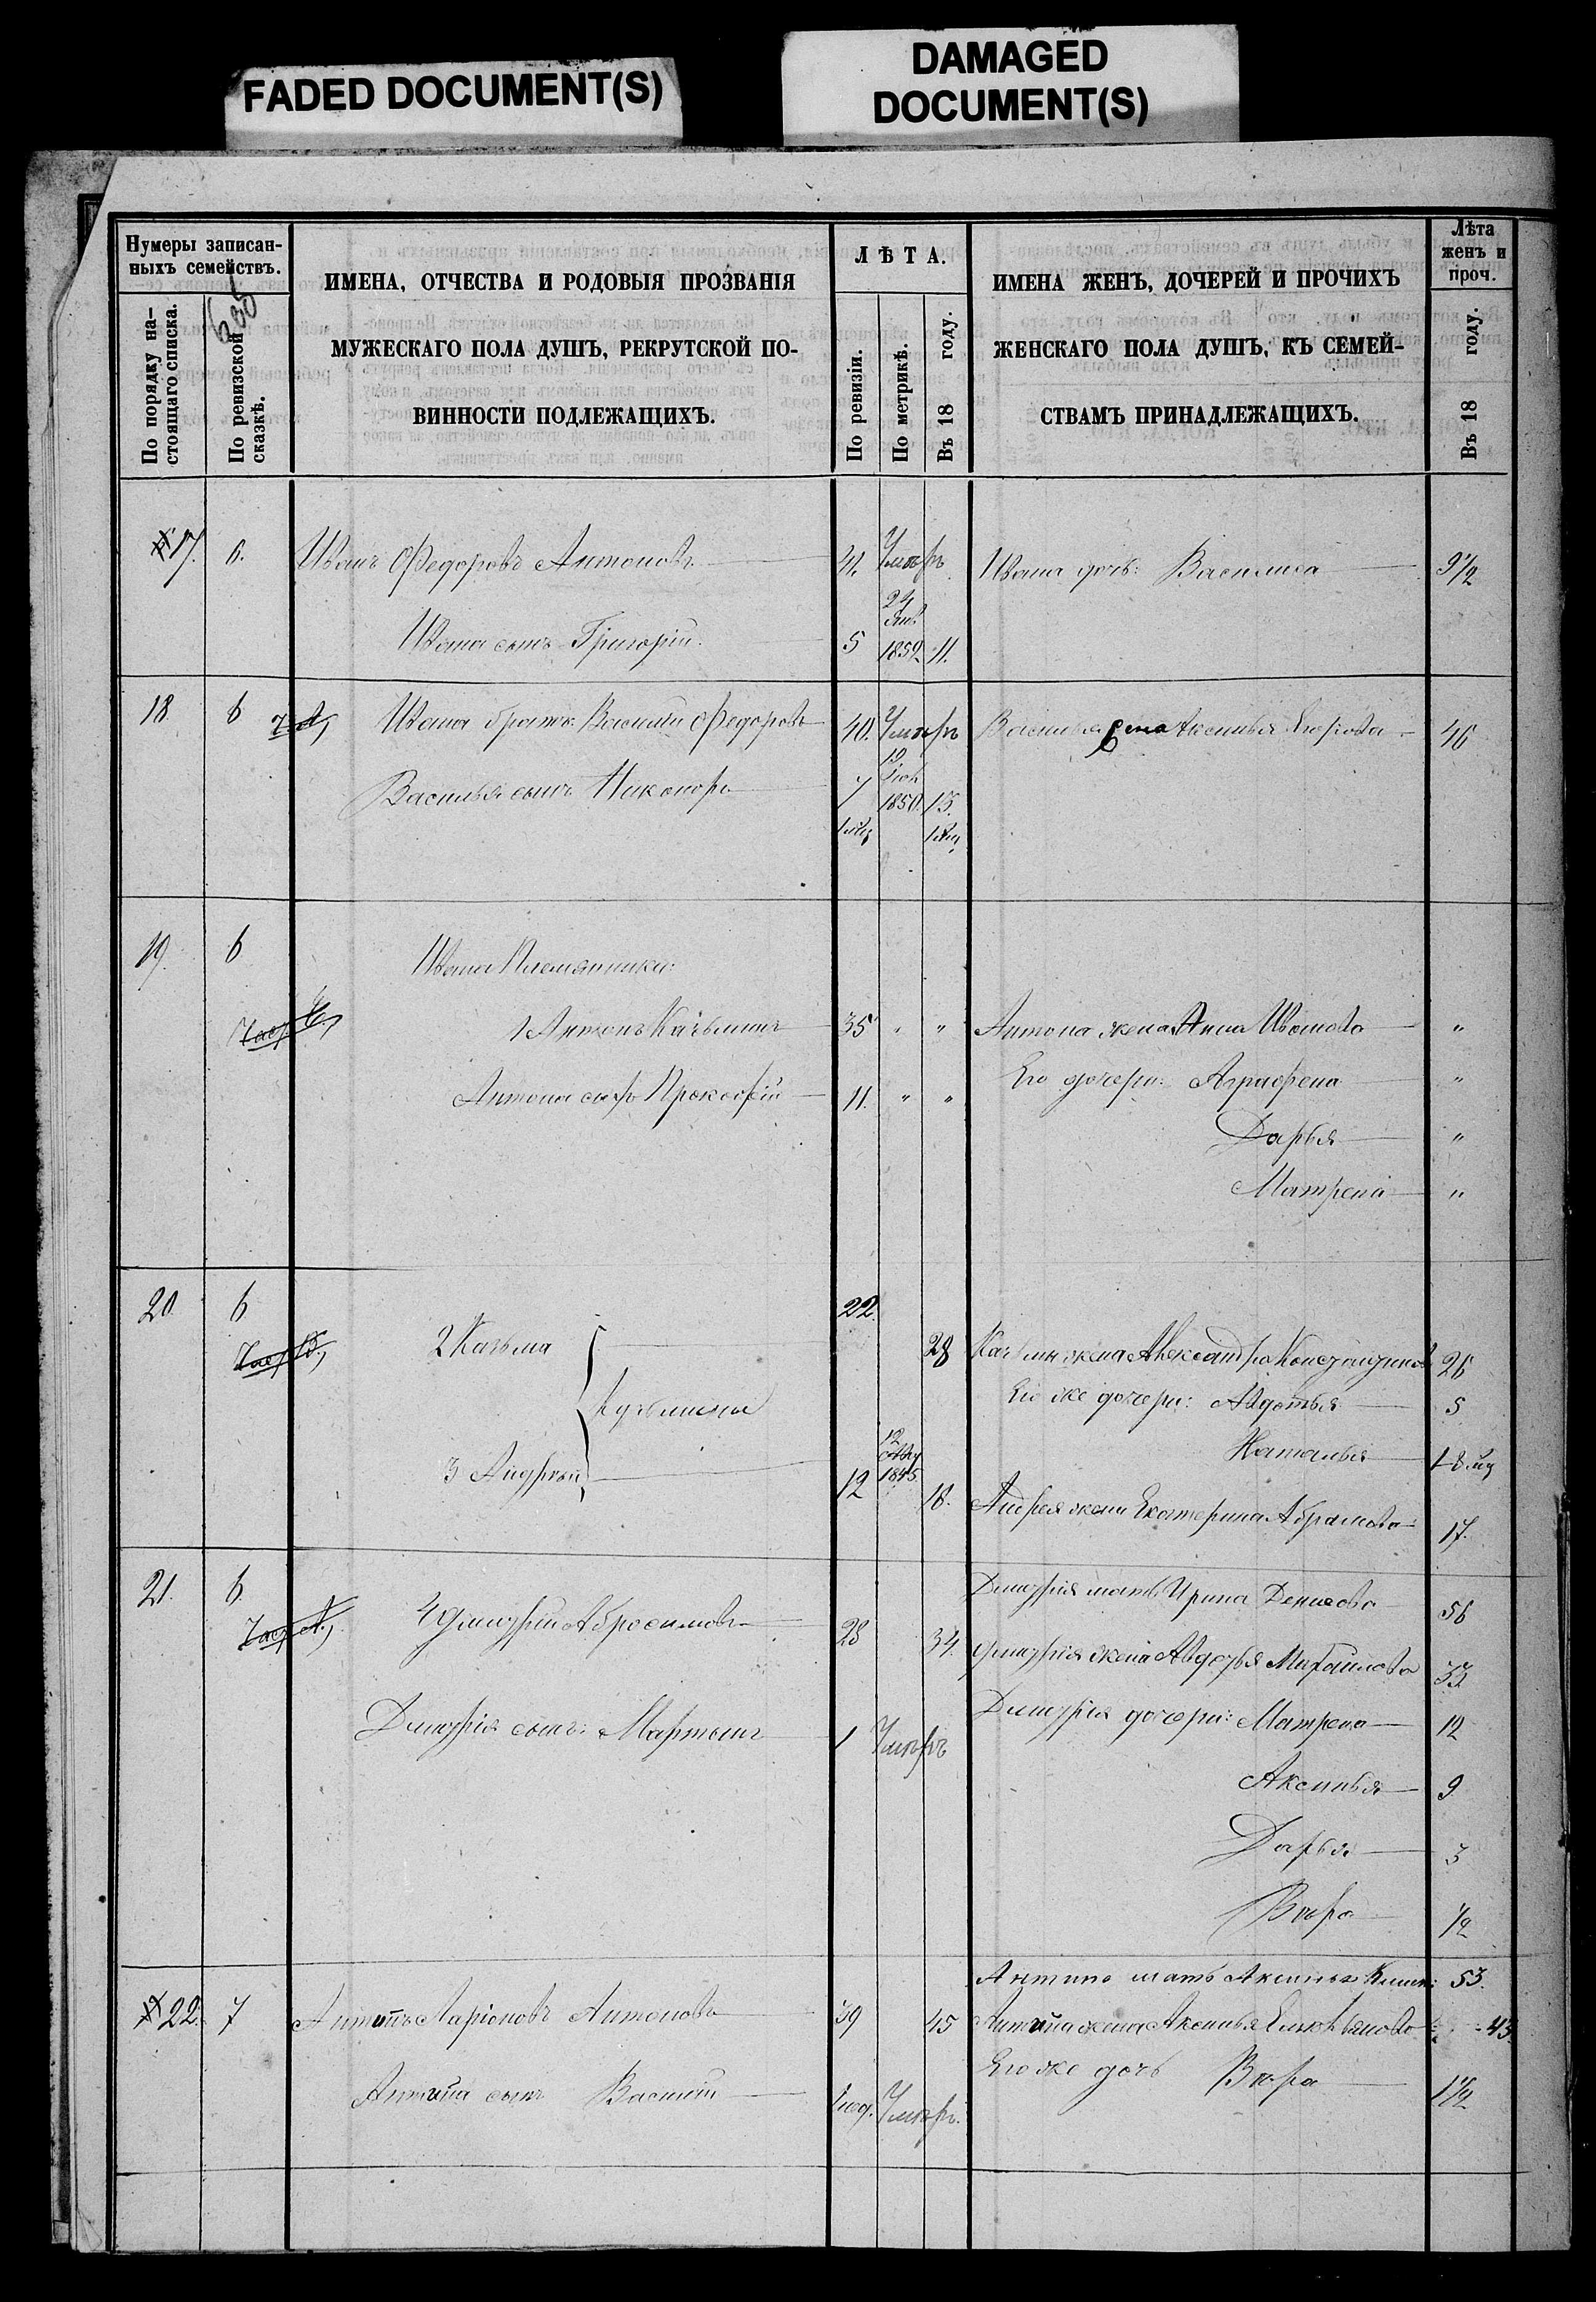 FADED DOCUMENT(S)
DAMAGED
DOCUMENT(S)
Нумеры записан-
ныхъ семействъ.
По порядку на-
стоящаго списка.
По ревизской
сказкѣ.
ИМЕНА, ОТЧЕСТВА И РОДОВЫЯ ПРОЗВАНІЯ
МУЖЕСКАГО ПОЛА ДУШЪ, РЕКРУТСКОЙ ПО-
ВИННОСТИ ПОДЛЕЖАЩИХЪ.
ЛѢТА.
По ревизіи.
По метрикѣ.
Въ 18 году.
ИМЕНА ЖЕНЪ, ДОЧЕРЕЙ И ПРОЧИХЪ
ЖЕНСКАГО ПОЛА ДУШЪ, КЪ СЕМЕЙ-
СТВАМЪ ПРИНАДЛЕЖАЩИХЪ.
Лѣта
женъ и
проч.
Въ 18 году.
17. 6. Иванъ Федоровъ Антоновъ 41. Умеръ Ивана дочь: Василиса 9 1/2
24
Янв
Ивана сынъ Григорій 5 1852 11.
18 6 Ивана братъ Василій Федоровъ 40. Умеръ Василья жена Аксинья Егорова 46
Василья сынъ Никоноръ 7 1850. 13.
19. 6 Ивана Племянники:
1 Антонъ Казьминъ 35 " " Антона жена Анна Иванова "
Антона сынъ Прокофій 11. " " Его дочери: Аграфена "
Дарья "
Матрена "
20 6 22.
2 Казьма 28 Казьмы жена Александра 26
Кузьмины Его же дочери: Авдотья 5
12
Наталья
3 Андрей 12 1845 18. Андрея жена Екатерина Абрамова 17.
21. 6. Дмитрія мать Ирина Денисова 56
4 Дмитрій Абросимовъ 28 34. Дмитрія жена Авдотья Михайлова 33
Дмитрія сынъ: Мартынъ 1 Умеръ Дмитрія дочери: Матрена 12
Аксинья 9
Дарья 3
Вера 1/2
Антипа мать Аксинья 53.
22. 7 Антипъ Ларіоновъ Антоновъ 39 45 Антипа жена Аксинья Емельянова 43
Антипа сынъ Василій Умеръ. Его же дочь Вера 1 1/2